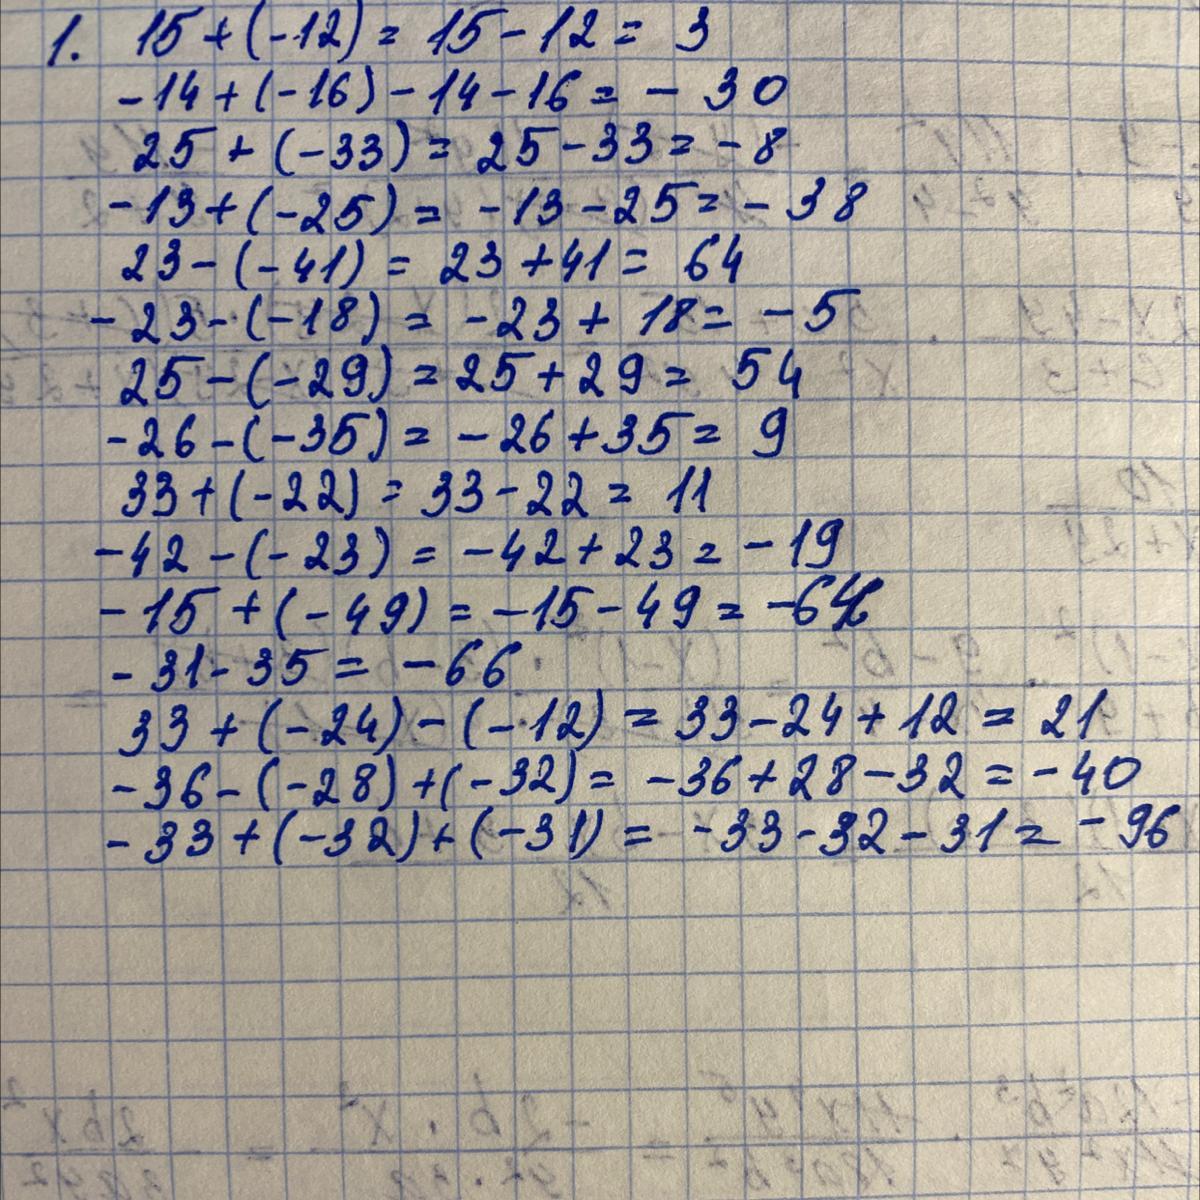 1. 15 + (-12) = 15 - 12 = 3
-14 + (-16) - 14 - 16 = - 30
25 + (-33) = 25 - 33 = -8
-13 + (-25) = -13 - 25 = - 38
23 - (-41) = 23 + 41 = 64
-23 - (-18) = -23 + 18 = -5
25 - (-29) = 25 + 29 = 54
-26 - (-35) = -26 + 35 = 9
33 + (-22) = 33 - 22 = 11
-42 - (-23) = -42 + 23 = -19
-15 + (-49) = -15 - 49 = -64
-31 - 35 = -66
33 + (-24) - (-12) = 33 - 24 + 12 = 21
-36 - (-28) + (-32) = -36 + 28 - 32 = -40
-33 + (-32) + (-31) = -33 - 32 - 31 = -96